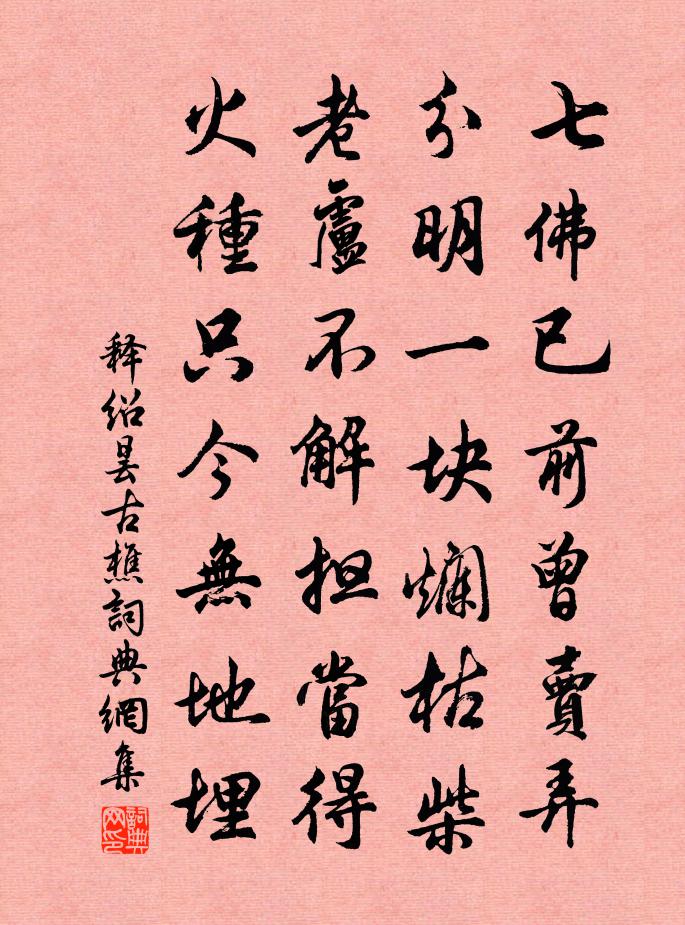 七佛已前曾賣弄
分明一块爛枯柴
老盧不解担當得
火種只今無地埋
释绍曇古樵詞典網集
詞典网印